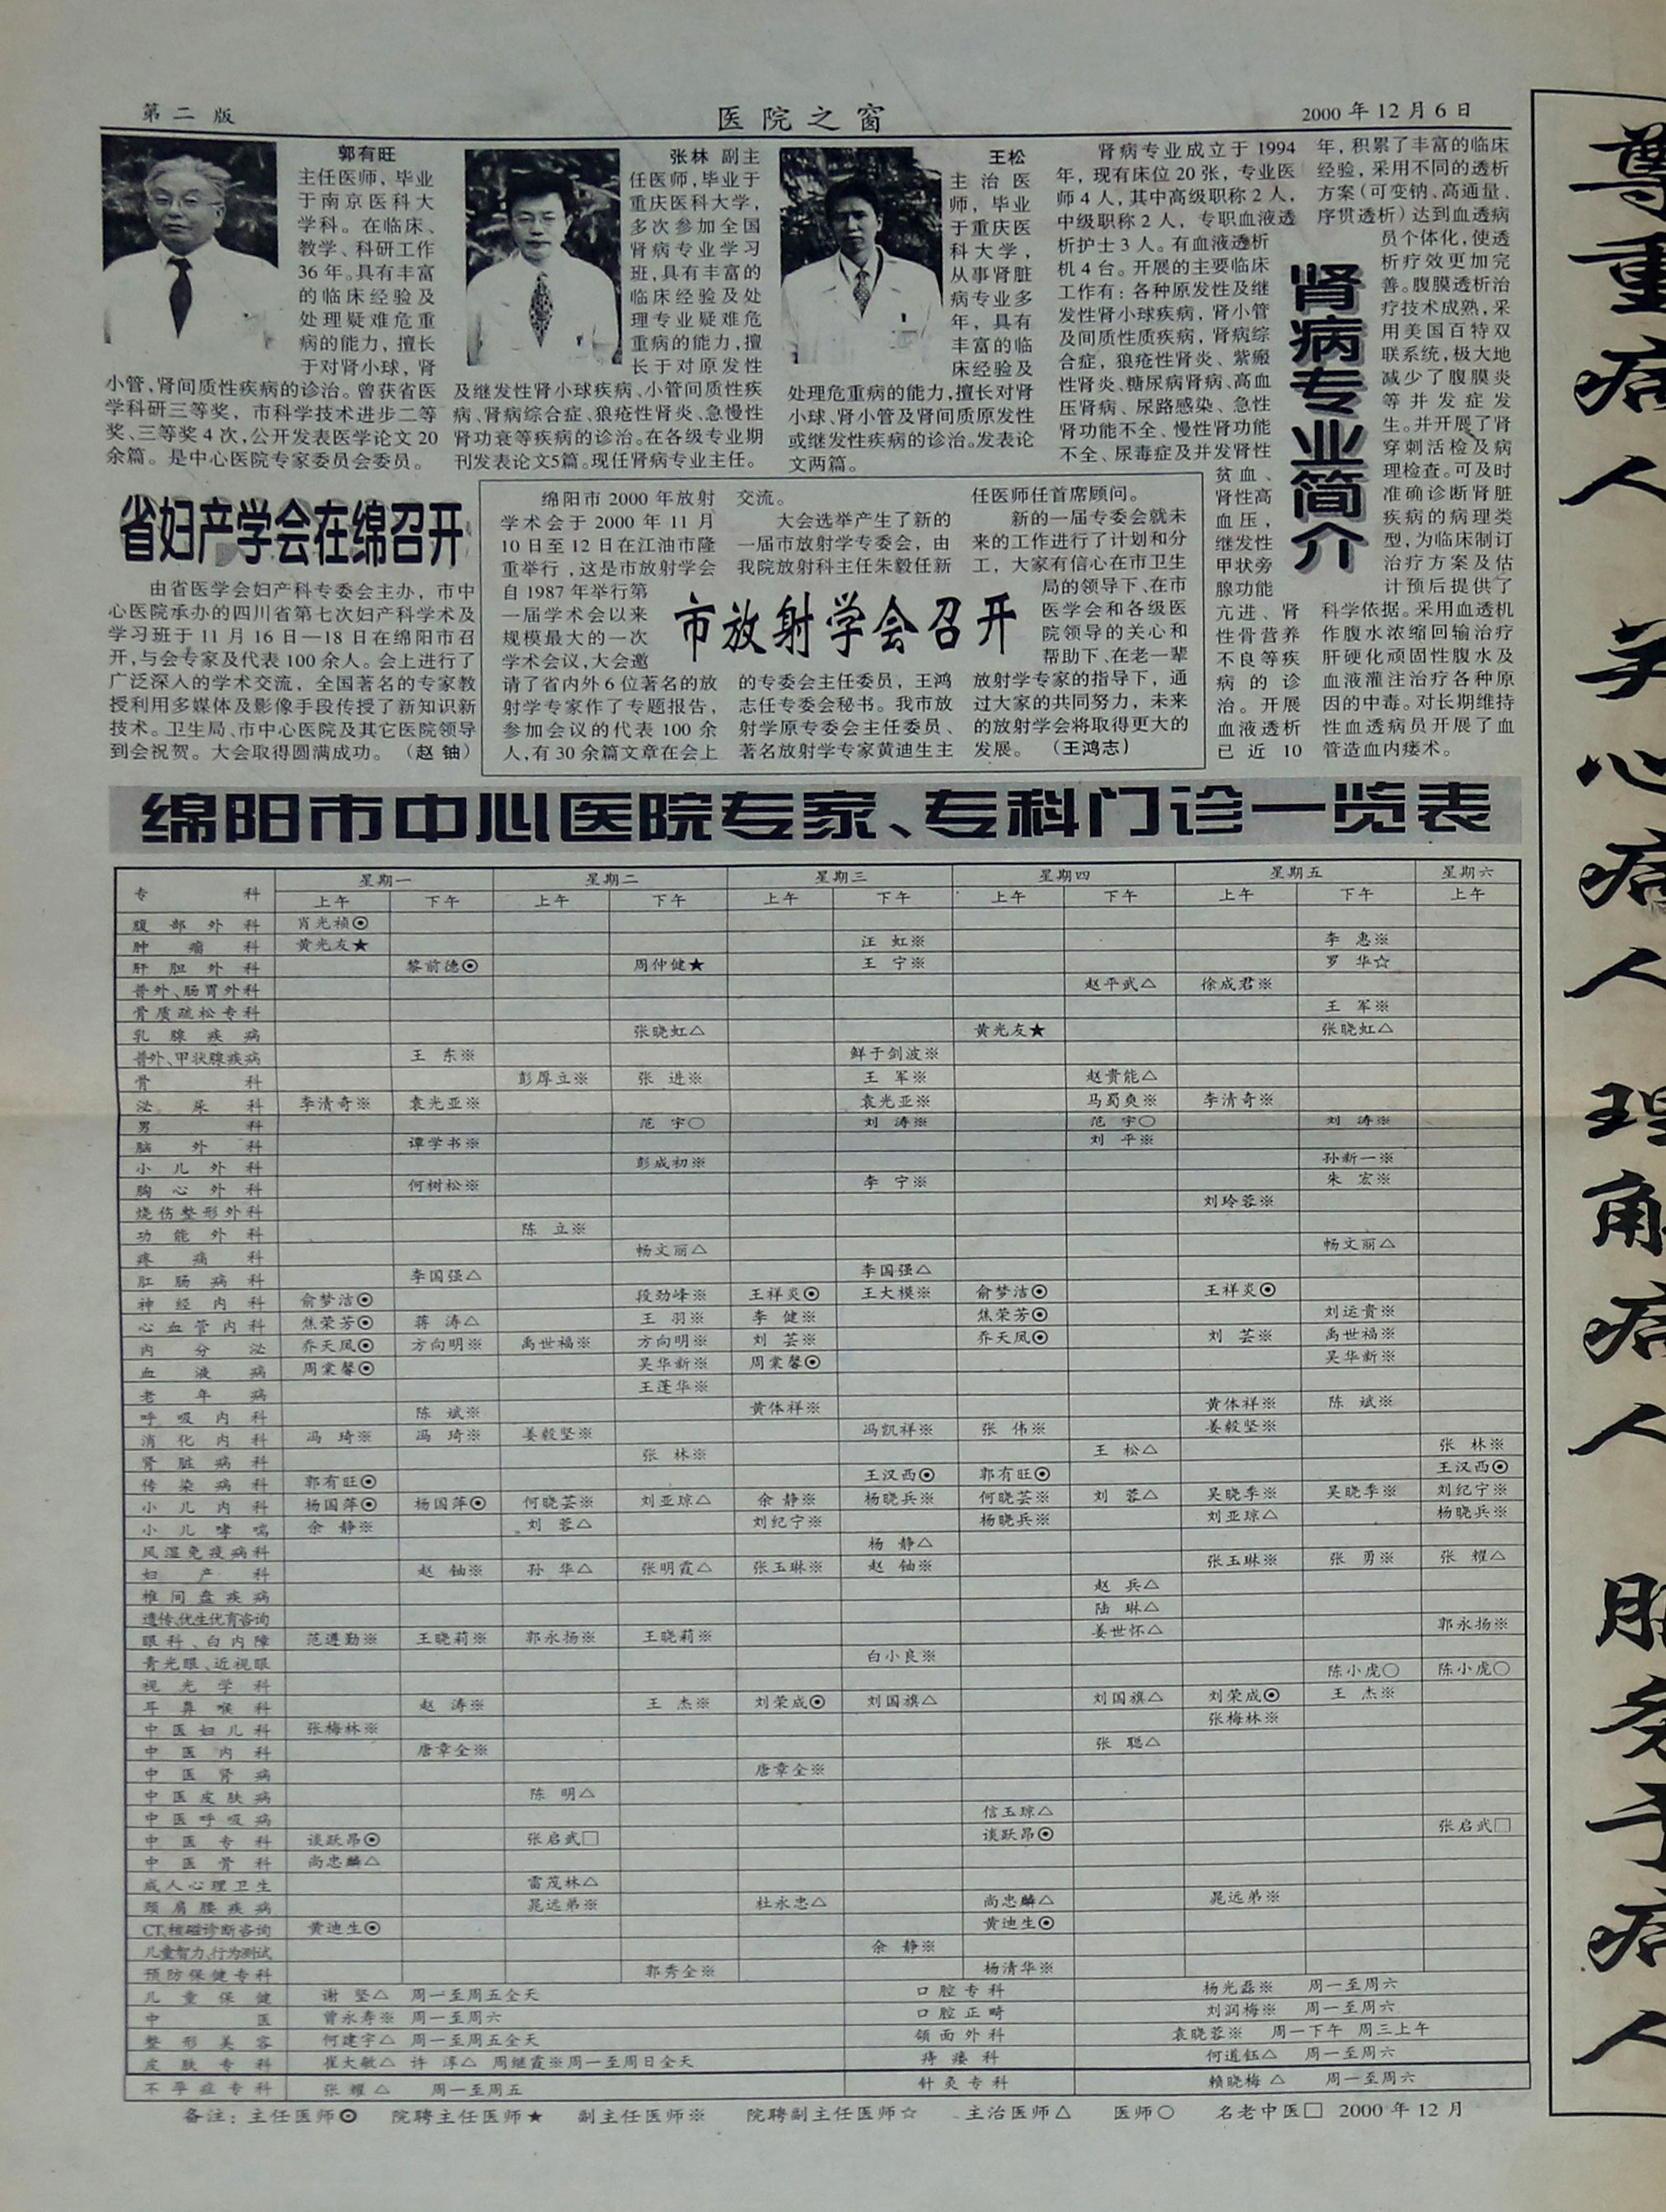 第二版
医院之窗
2000年12月6日
郭有旺
主任医师，毕业
于南京医科大
学科。在临床、
教学、科研工作
36年。具有丰富
的临床经验及
处理疑难危重
病的能力，擅长
于对肾小球，肾
小管，肾间质性疾病的诊治。曾获省医
学科研三等奖，市科学技术进步二等
奖、三等奖4次，公开发表医学论文20
余篇。是中心医院专家委员会委员。
张林 副主
任医师，毕业于
重庆医科大学，
多次参加全国
肾病专业学习
班，具有丰富的
临床经验及处
理专业疑难危
重病的能力，擅
长于对原发性
及继发性肾小球疾病、小管间质性疾
病、肾病综合症、狼疮性肾炎、急慢性
肾功衰等疾病的诊治。在各级专业期
刊发表论文5篇。现任肾病专业主任。
王松
主治医
师，毕业
于重庆医
科大学，
从事肾脏
病专业多
年，具有
丰富的临
床经验及
处理危重病的能力，擅长对肾
小球、肾小管及肾间质原发性
或继发性疾病的诊治。发表论
文两篇。
肾病专业简介
肾病专业成立于1994
年，现有床位20张，专业医
师4人，其中高级职称2人，
中级职称2人，专职血液透
析护士3人。有血液透析
机4台。开展的主要临床
工作有：各种原发性及继
发性肾小球疾病，肾小管
及间质性质疾病，肾病综
合症，狼疮性肾炎、紫癜
性肾炎、糖尿病肾病、高血
压肾病、尿路感染、急性
肾功能不全、慢性肾功能
不全、尿毒症及并发肾性
贫血、
肾性高
血压，
继发性
甲状旁
腺功能
亢进、肾
性骨营养
不良等疾
病的诊
治。开展
血液透析
已近10
年，积累了丰富的临床
经验，采用不同的透析
方案（可变钠、高通量、
序贯透析）达到血透病
员个体化，使透
析疗效更加完
善。腹膜透析治
疗技术成熟，采
用美国百特双
联系统，极大地
减少了腹膜炎
等并发症发
生。并开展了肾
穿刺活检及病
理检查。可及时
准确诊断肾脏
疾病的病理类
型，为临床制订
治疗方案及估
计预后提供了
科学依据。采用血透机
作腹水浓缩回输治疗
肝硬化顽固性腹水及
血液灌注治疗各种原
因的中毒。对长期维持
性血透病员开展了血
管造血内瘘术。
省妇产学会在绵召开
由省医学会妇产科专委会主办，市中
心医院承办的四川省第七次妇产科学术及
学习班于11月16日—18日在绵阳市召
开，与会专家及代表100余人。会上进行了
广泛深入的学术交流，全国著名的专家教
授利用多媒体及影像手段传授了新知识新
技术。卫生局、市中心医院及其它医院领导
到会祝贺。大会取得圆满成功。（赵铀）
市放射学会召开
绵阳市2000年放射
学术会于2000年11月
10日至12日在江油市隆
重举行，这是市放射学会
自1987年举行第
一届学术会以来
规模最大的一次
学术会议，大会邀
请了省内外6位著名的放
射学专家作了专题报告，
参加会议的代表100余
人，有30余篇文章在会上
交流。
大会选举产生了新的
一届市放射学专委会，由
我院放射科主任朱毅任新
的专委会主任委员，王鸿
志任专委会秘书。我市放
射学原专委会主任委员、
著名放射学专家黄迪生主
任医师任首席顾问。
新的一届专委会就未
来的工作进行了计划和分
工，大家有信心在市卫生
局的领导下、在市
医学会和各级医
院领导的关心和
帮助下、在老一辈
放射学专家的指导下，通
过大家的共同努力，未来
的放射学会将取得更大的
发展。（王鸿志）
绵阳市中心医院专家、专科门诊一览表
专科 星期一 星期二 星期三 星期四 星期五 星期六
上午 下午 上午 下午 上午 下午 上午 下午 上午 下午 上午
腹部外科 肖光祯⊙
肿瘤科 黄光友★ 汪虹※ 李惠※
肝胆外科 黎前德⊙ 周仲健★ 王宁※ 罗华☆
普外、肠胃外科 赵平武△ 徐成君※
骨质疏松专科 王军※
乳腺疾病 张晓虹△ 黄光友★ 张晓虹△
普外、甲状腺疾病 王东※ 鲜于剑波※
骨科 彭厚立※ 张进※ 王军※ 赵贵能△
泌尿科 李清奇※ 袁光亚※ 袁光亚※ 马蜀爽※ 李清奇※
男科 范宇○ 刘涛※ 范宇○ 刘涛※
脑外科 谭学书※ 刘平※
小儿外科 彭成初※ 孙新一※
胸心外科 何树松※ 李宁※ 朱宏※
烧伤整形外科 刘玲蓉※
功能外科 陈立※
疼痛科 杨文丽△ 杨文丽△
肛肠病科 李国强△ 李国强△
神经内科 俞梦洁⊙ 段劲峰※ 王祥炎⊙ 王大模※ 俞梦洁⊙ 王祥炎⊙
心血管内科 焦荣芳⊙ 蒋涛△ 王羽※ 李健※ 焦荣芳⊙ 刘运贵※
内分泌 乔天凤⊙ 方向明※ 禹世福※ 方向明※ 刘芸※ 乔天凤⊙ 刘芸※ 禹世福※
血液病 周棠馨⊙ 吴华新※ 周棠馨⊙ 吴华新※
老年病 王莲华※
呼吸内科 陈斌※ 黄体祥※ 黄体祥※ 陈斌※
消化内科 冯琦※ 冯琦※ 姜毅坚※ 冯凯祥※ 张伟※ 姜毅坚※
肾脏病科 张林※ 王松△ 张林※
传染病科 郭有旺⊙ 王汉西⊙ 郭有旺⊙ 王汉西⊙
小儿内科 杨国萍⊙ 杨国萍⊙ 何晓芸※ 刘亚琼△ 余静※ 杨晓兵※ 何晓芸※ 刘蓉△ 吴晓季※ 吴晓季※ 刘纪宁※
小儿哮喘 余静※ 刘蓉△ 刘纪宁※ 杨晓兵※ 刘亚琼△ 杨晓兵※
风湿免疫病科 杨静△
妇产科 赵铀※ 孙华△ 张明霞△ 张玉琳※ 赵铀※ 张玉琳※ 张勇※ 张耀△
椎间盘疾病 赵兵△
遗传、优生优育咨询 陆琳△
眼科、白内障 范遵勤※ 王晓莉※ 郭永扬※ 王晓莉※ 姜世怀△ 郭永扬※
青光眼、近视眼 白小良※
视光学科 陈小虎○ 陈小虎○
耳鼻喉科 赵涛※ 王杰※ 刘荣成⊙ 刘国旗△ 刘国旗△ 刘荣成⊙ 王杰※
中医妇儿科 张梅林※ 张梅林※
中医内科 唐章全※ 张聪△
中医肾病 唐章全※
中医皮肤病 陈明△
中医呼吸病 信玉琼△
中医专科 谈跃昂⊙ 张启武□ 谈跃昂⊙ 张启武□
中医骨科 尚忠麟△
成人心理卫生 雷茂林△
颈肩腰疾病 晁远弟※ 杜永忠△ 尚忠麟△ 晁远弟※
CT、核磁诊断咨询 黄迪生⊙ 黄迪生⊙
儿童智力、行为测试 余静※
预防保健专科 郭秀全※ 杨清华※
儿童保健 谢坚△ 周一至周五全天 口腔专科 杨光磊※ 周一至周六
中医 曾永寿※ 周一至周六 口腔正畸 刘润梅※ 周一至周六
整形美容 何建宇△ 周一至周五全天 颌面外科 袁晓蓉※ 周一下午 周三上午
皮肤专科 崔大敏△ 许淳△ 周继霞※周一至周日全天 痔瘘科 何道钰△ 周一至周六
不孕症专科 张耀△ 周一至周五 针灸专科 赖晓梅△ 周一至周六
备注：主任医师⊙ 院聘主任医师★ 副主任医师※ 院聘副主任医师☆ 主治医师△ 医师○ 名老中医□ 2000年12月
尊重病人 关心病人 理解病人 服务于病人